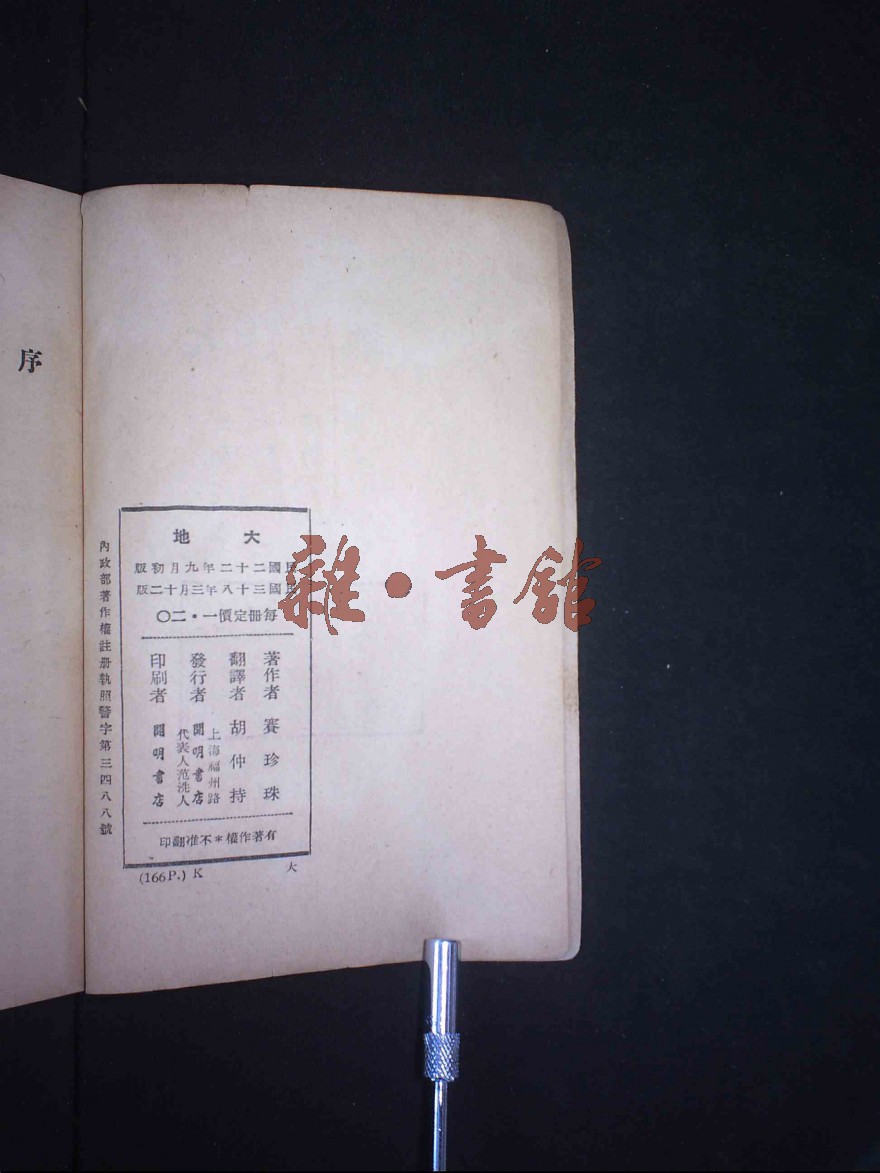 大地
民國二十二年九月初版
民國三十八年三月十二版
每冊定價一·二〇
著作者 賽珍珠
翻譯者 胡仲持
上海福州路
發行者 開明書店
代表人范洗人
印刷者 開明書店
有著作權＊不准翻印
內政部著作權註册執照警字第三四八八號
(166P.) K
大
序
雜·書館